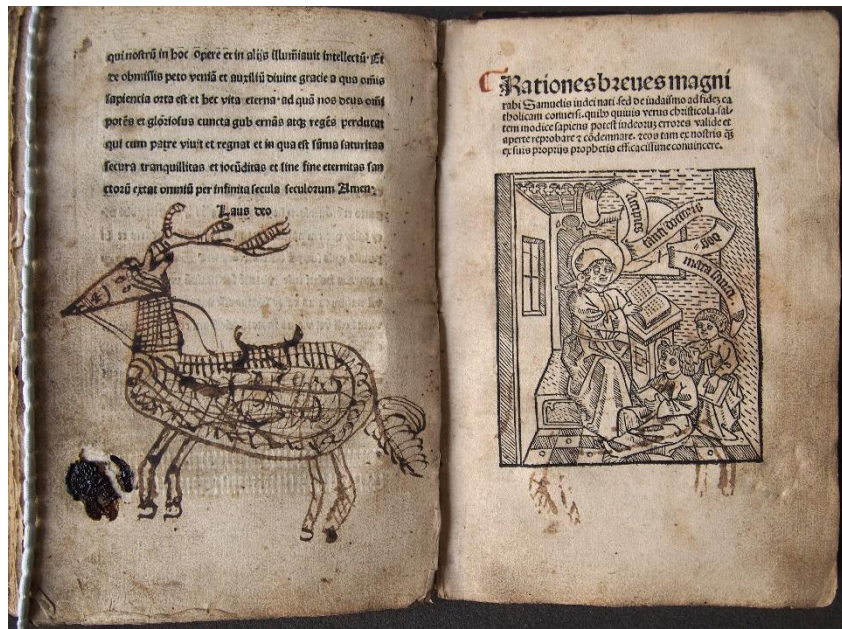 qui nostrũ in hoc opere et in alijs illumĩauit intellectũ· Et
de obmissis peto veniã et auxiliũ diuine gracie a qua om̃is
sapiencia orta est et hec vita eterna· ad quã nos deus om̃i
potẽs et gloriosus cuncta gub ernãs atqꝫ regẽs perducat
qui cum patre viuit et regnat et in qua est sũma saturitas
secura tranquillitas et iocũditas et sine fine eternitas san
ctorũ extat omniũ per infinita secula seculorum Amen·
Laus deo
Rationes breues magni
rabi Samuelis iudei nati· sed de iudaismo ad fidẽ ca
tholicam conuersi· quibꝰ quiuis verus christicola· sal-
tem modice sapiens potest iudeorũ errores valide et
aperte reprobare ⁊ cõdemnare· ⁊ eos tam ex nostris qꝫ
ex suis proprijs prophetis efficacissime conuincere.
Accipies
tanti doctoris
dog
mata sancta